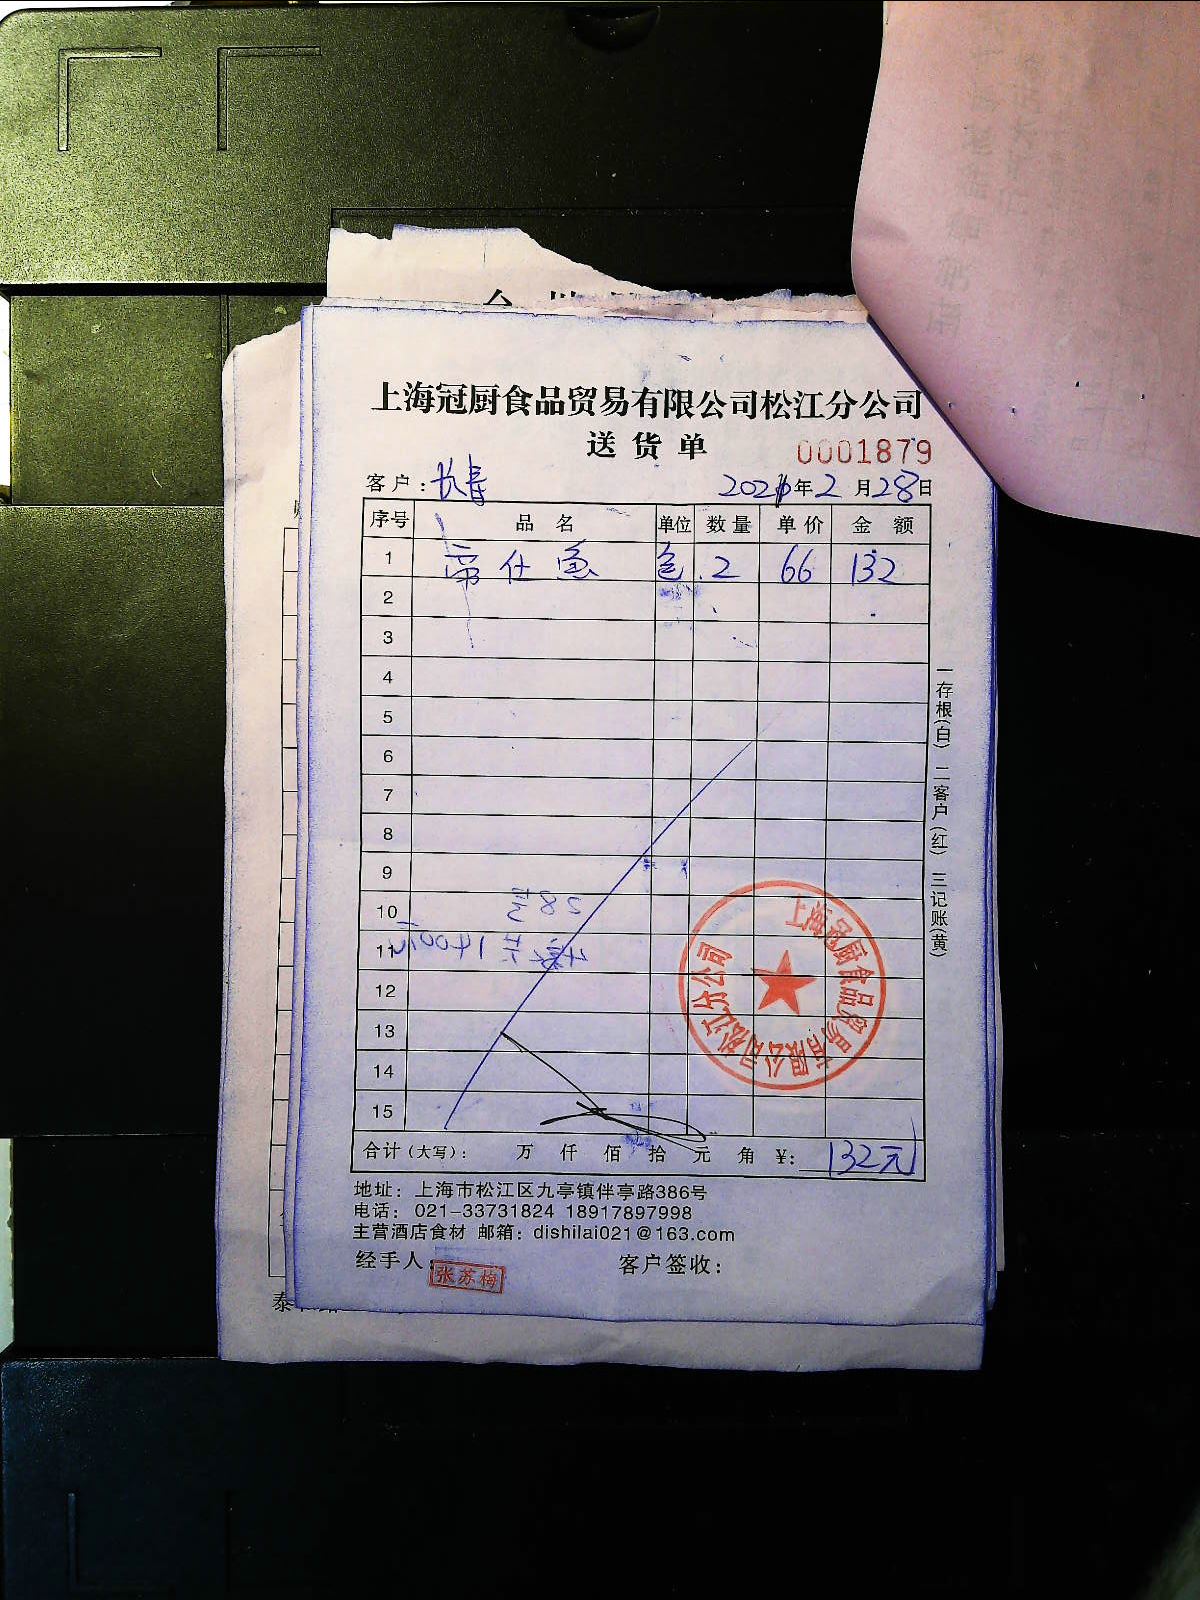 上海冠厨食品贸易有限公司松江分公司
送货单 0001879
客户: 长春 2021年2月28日
序号 品名 单位 数量 单价 金额
1 帝仕鱼 包 2 66 132
2
3
4
5
6
7
8
9
10
11
12
13
14
15
合计(大写): 万 仟 佰 拾 元 角 ¥: 132元
地址: 上海市松江区九亭镇伴亭路386号
电话: 021-33731824 18917897998
主营酒店食材 邮箱: dishilai021@163.com
经手人: 张苏梅 客户签收:
一存根(白) 二客户(红) 三记账(黄)
上海冠厨食品贸易有限公司松江分公司